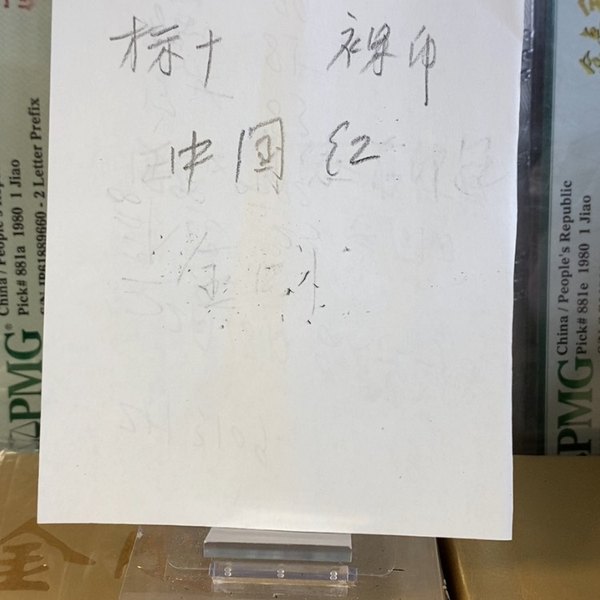 标十 裸币
中国红
China / People's R
Pick# 881a 1980 1 Jiao
S/N JP61889660 - 2 Letter Prefix
PMG
China / People's Republic
Pick# 881e 1980 1 Jiao
PMG
金